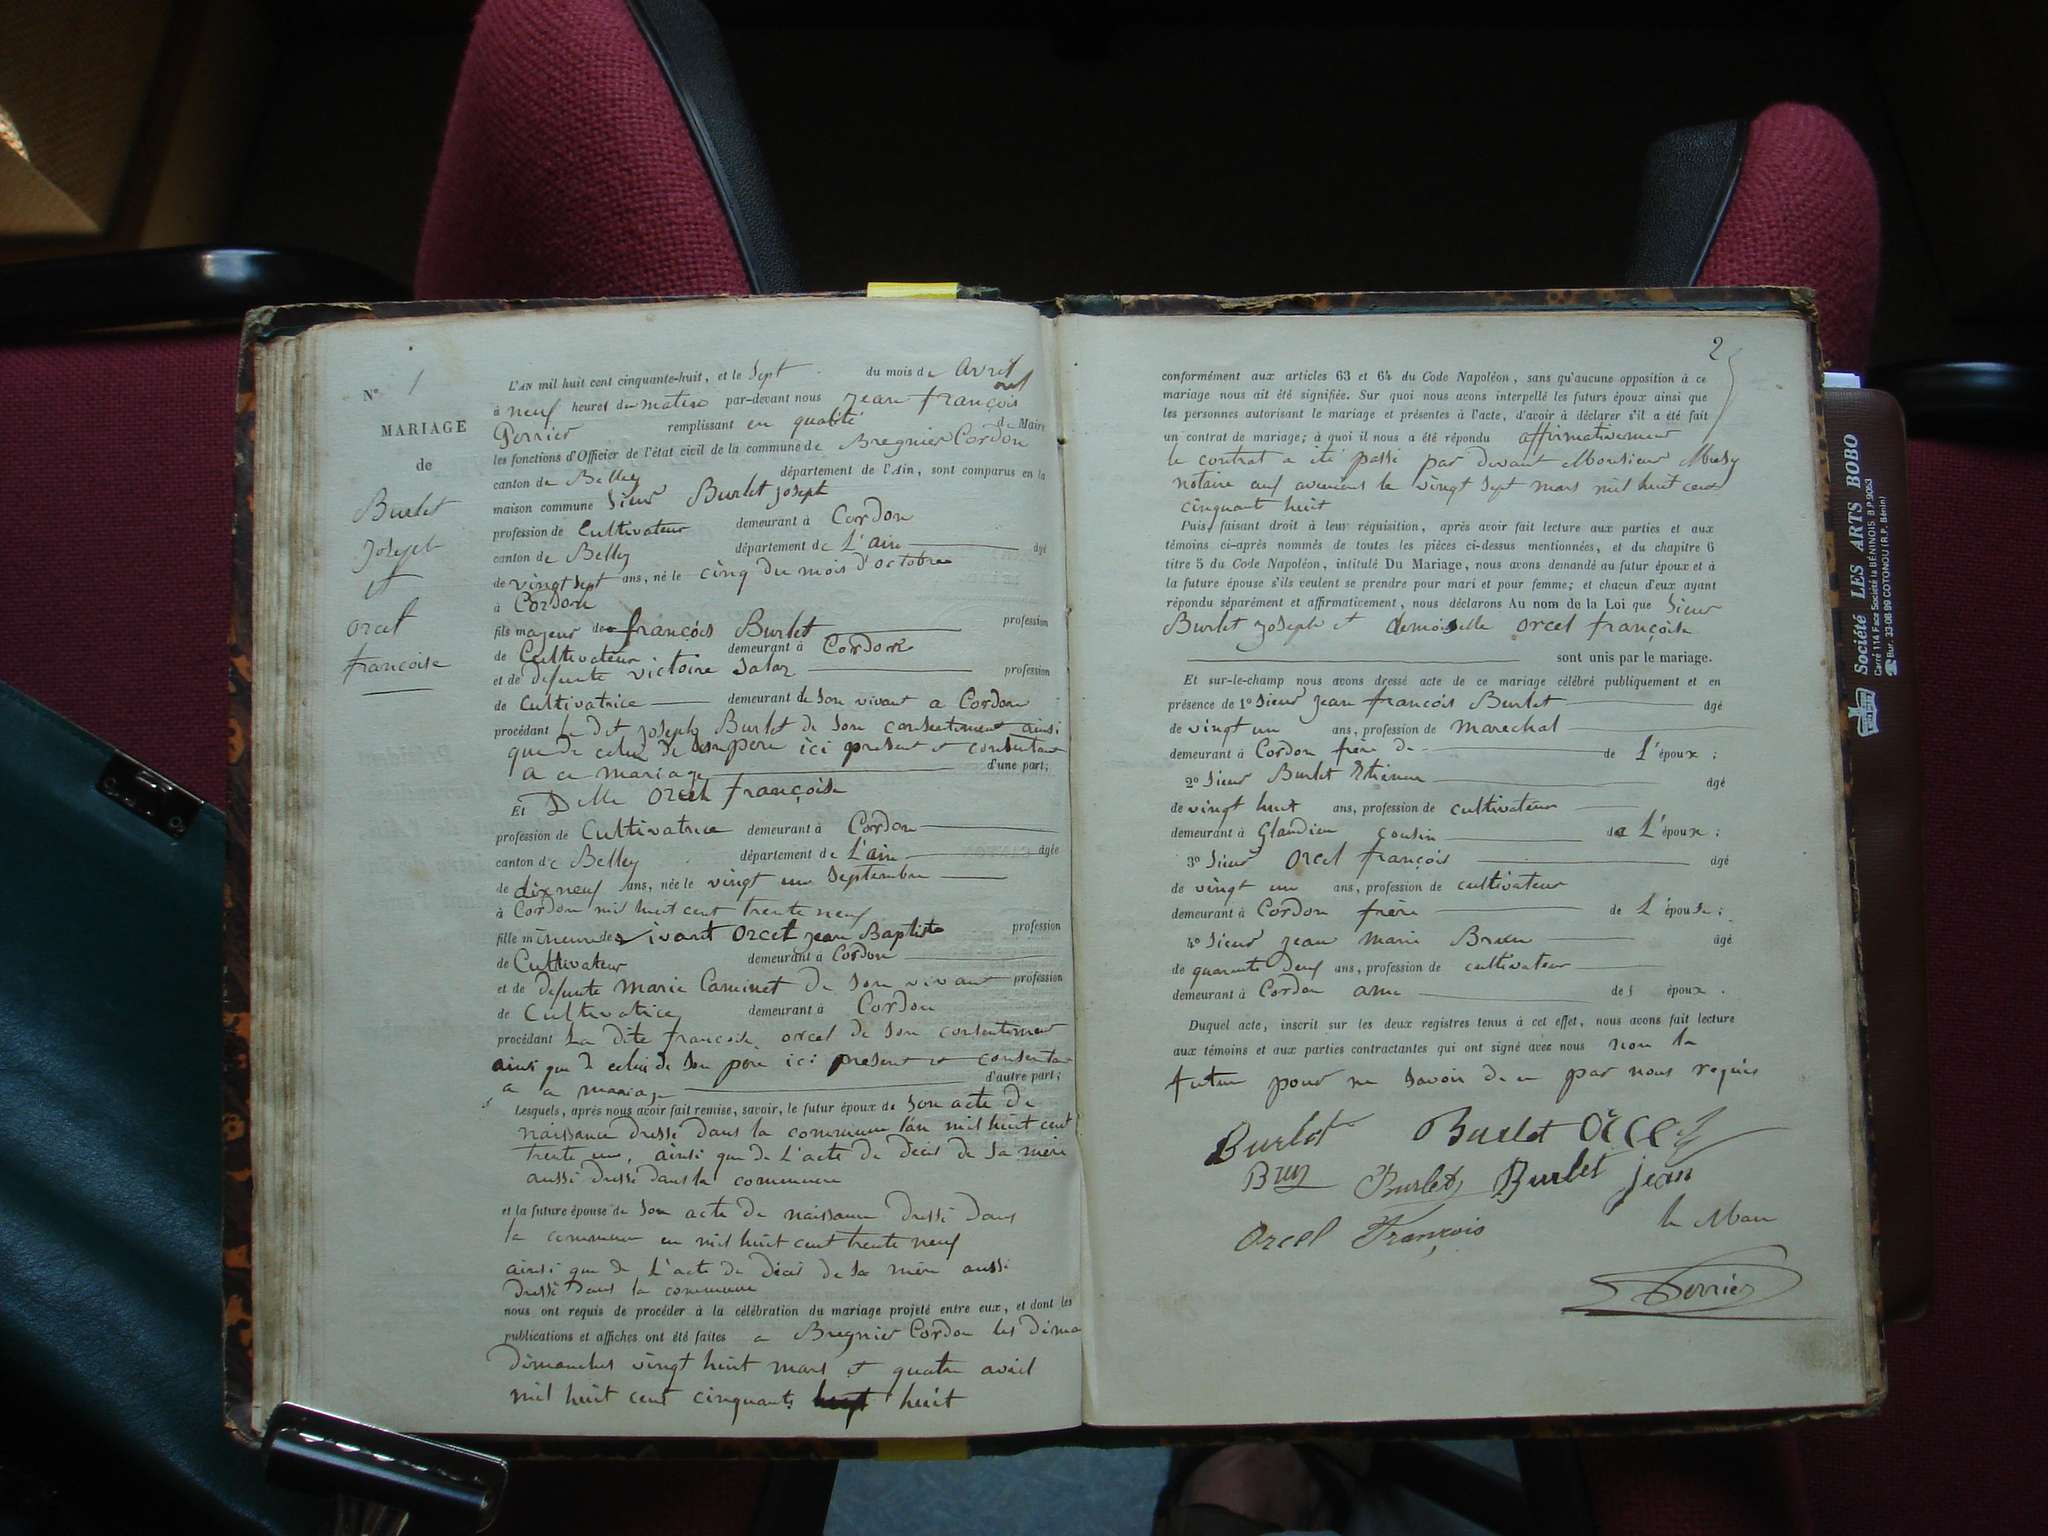 N° 1
MARIAGE
de
Burlet
Joseph
et
Orcel
françoise
L'AN mil huit cent cinquante-huit, et le sept du mois de avril
à neuf heures du matin par-devant nous jean françois
Perrier remplissant en qualité de Maire
les fonctions d'Officier de l'état civil de la commune de Bregnier Cordon
canton de Belley département de l'Ain, sont comparus en la
maison commune sieur Burlet joseph
profession de Cultivateur demeurant à Cordon
canton de Belley département de L'ain âgé
de vingt sept ans, né le cinq du mois d'octobre
à Cordon
fils majeur de françois Burlet profession
de Cultivateur demeurant à Cordon
et de defunte victoire profession
de Cultivatrice demeurant de son vivant a Cordon
procédant Le dit joseph Burlet de son consentement ainsi
que de celui de son pere ici present et consentant
a ce mariage d'une part;
Et Delle Orcel françoise
profession de Cultivatrice demeurant à Cordon
canton de Belley département de L'ain âgée
de dix neuf ans, née le vingt un septembre
à Cordon mil huit cent trente neuf
fille mineure de vivant Orcel jean Baptiste profession
de Cultivateur demeurant à Cordon
et de defunte Marie Caminet de son vivant profession
de Cultivatrice demeurant à Cordon
procédant La dite francoise orcel de son consentement
ainsi que de celui de son pere ici present et consentant
a ce mariage d'autre part;
Lesquels, après nous avoir fait remise, savoir, le futur époux de son acte de
naissance dressé dans la commune l'an mil huit cent
trente un, ainsi que de L'acte de décès de sa mère
aussi dressé dans la commune
et la future épouse de son acte de naissance dressé dans
la commune en mil huit cent trente neuf
ainsi que de L'acte de décès de sa mère aussi
dressé dans la commune
nous ont requis de procéder à la célébration du mariage projeté entre eux, et dont les
publications et affiches ont été faites a Bregnier Cordon les dima
dimanches vingt huit mars et quatre avril
mil huit cent cinquante huit
2
conformément aux articles 63 et 64 du Code Napoléon, sans qu'aucune opposition à ce
mariage nous ait été signifiée. Sur quoi nous avons interpellé les futurs époux ainsi que
les personnes autorisant le mariage et présentes à l'acte, d'avoir à déclarer s'il a été fait
un contrat de mariage; à quoi il nous a été répondu affirmativement
le contrat a été passé par devant Monsieur
notaire aux avenieres le vingt sept mars mil huit cent
cinquant huit
Puis, faisant droit à leur réquisition, après avoir fait lecture aux parties et aux
témoins ci-après nommés de toutes les pièces ci-dessus mentionnées, et du chapitre 6
titre 5 du Code Napoléon, intitulé Du Mariage, nous avons demandé au futur époux et à
la future épouse s'ils veulent se prendre pour mari et pour femme; et chacun d'eux ayant
répondu séparément et affirmativement, nous déclarons Au nom de la Loi que sieur
Burlet joseph et demoiselle orcel françoise
sont unis par le mariage.
Et sur-le-champ nous avons dressé acte de ce mariage célébré publiquement et en
présence de 1° sieur jean françois Burlet âgé
de vingt un ans, profession de marechal
demeurant à Cordon frère de de L'époux;
2° sieur Burlet Etienne âgé
de vingt huit ans, profession de cultivateur
demeurant à Glandieu cousin de L'époux;
3° sieur Orcel françois âgé
de vingt un ans, profession de cultivateur
demeurant à Cordon frère de L'épouse;
4° sieur jean marie âgé
de quarante deux ans, profession de cultivateur
demeurant à Cordon ami des époux.
Duquel acte, inscrit sur les deux registres tenus à cet effet, nous avons fait lecture
aux témoins et aux parties contractantes qui ont signé avec nous non la
future pour ne savoir de ce par nous requis
Burlet Burlet Orcel
Burlet Burlet jean
Orcel François le Maire
Perrier
Société LES ARTS BOBO
Carré 114 Face Société la BÉNINOIS B.P. 9053
Bur. 33-08-99 COTONOU (R.P. Bénin)